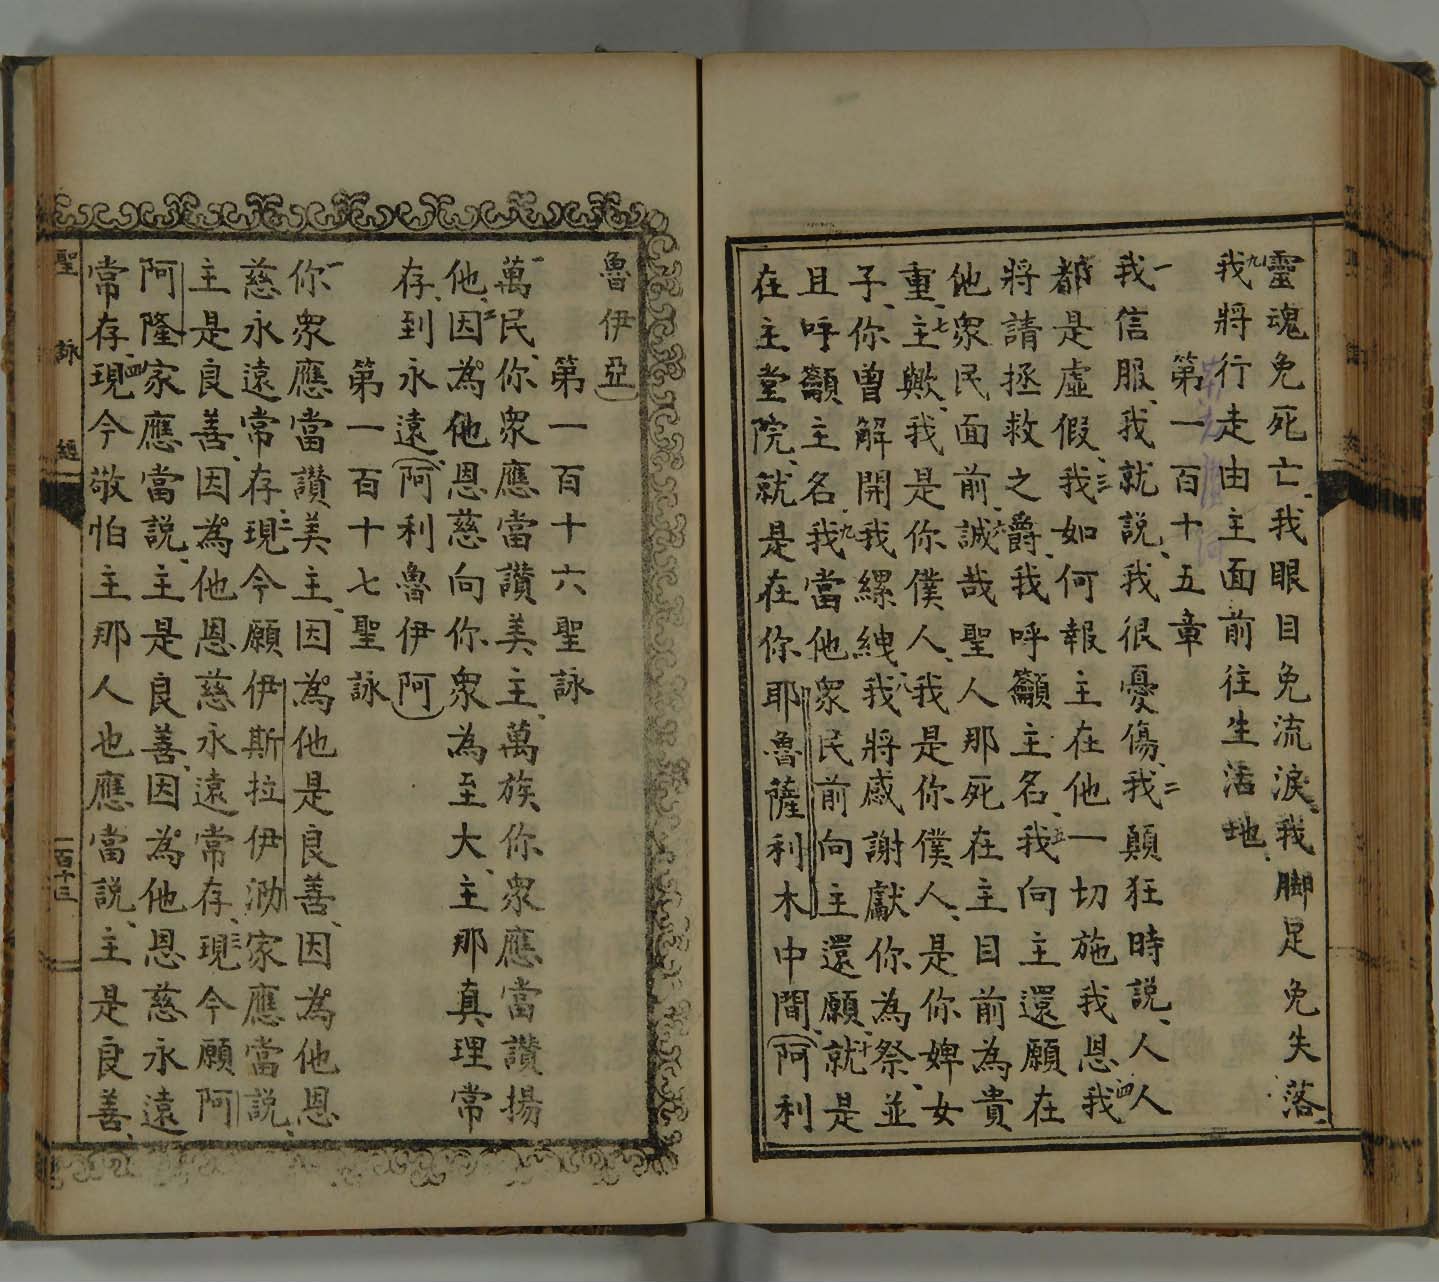 靈魂免死亡、我眼目免流淚、我脚足免失落、
九我將行走由主面前往生活地、
第一百十五章
一我信服、我就說、我很憂傷、二我顛狂時說、人人
都是虛假、三我如何報主在他一切施我恩、四我
將請拯救之爵、我呼籲主名、五我向主還願在
他衆民面前、六誠哉聖人那死在主目前為貴
重、七主歟、我是你僕人、我是你僕人、是你婢女
子、你曾解開我縲絏、八我將感謝獻你為祭、並
且呼籲主名、九我當他衆民前向主還願、十就是
在主堂院、就是在你耶魯薩利木中間、(阿利
魯伊亞)
第一百十六聖詠
一萬民、你衆應當讚美主、萬族、你衆應當讚揚
他、二因為他恩慈向你衆為至大、主那真理常
存、到永遠(阿利魯伊阿)
第一百十七聖詠
一你衆應當讚美主、因為他是良善、因為他恩
慈永遠常存、二現今願伊斯拉伊泐家應當說、
主是良善、因為他恩慈永遠常存、三現今願阿
阿隆家應當說、主是良善、因為他恩慈永遠
常存、四現今敬怕主那人也應當說、主是良善、
聖詠經
一百十三